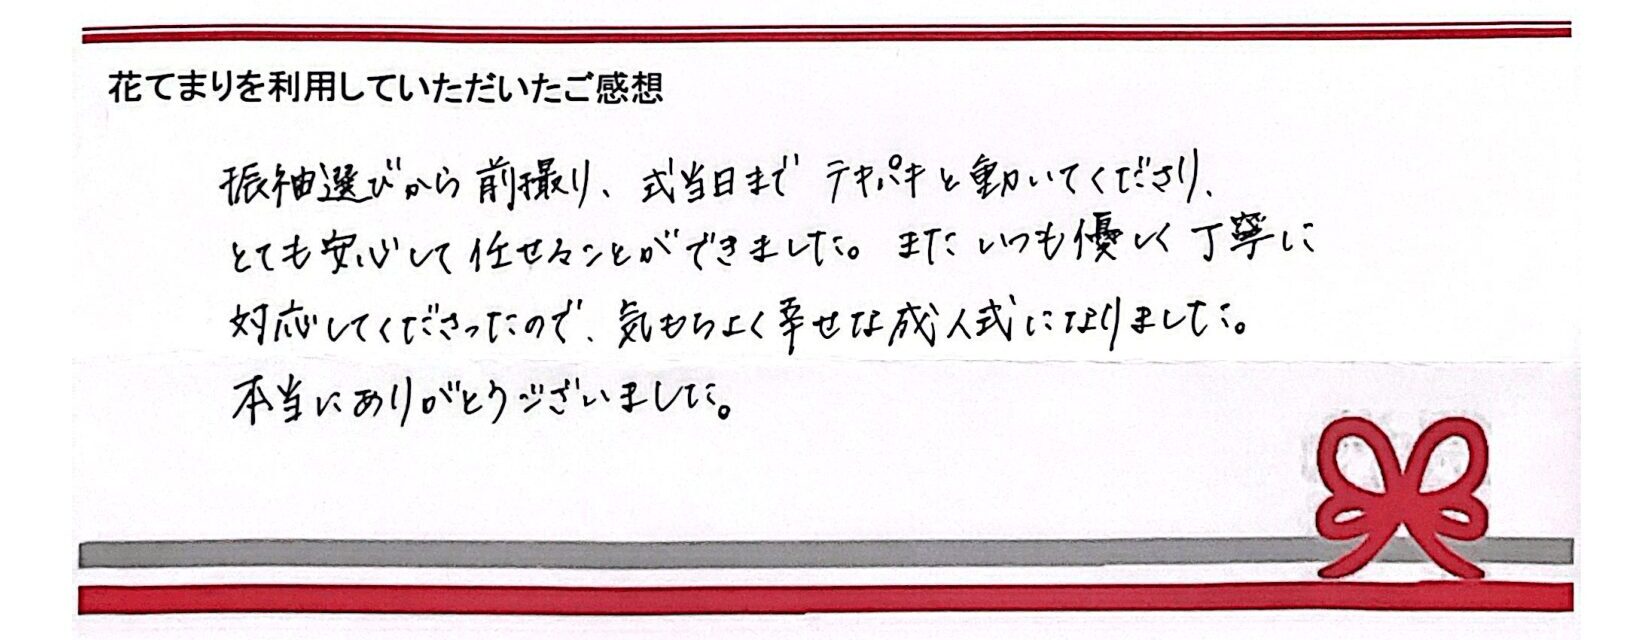 花てまりを利用していただいたご感想
振袖選びから前撮り、式当日まで テキパキと動いてくださり、
とても安心して任せることができました。またいつも優しく丁寧に
対応してくださったので、気もちよく幸せな成人式になりました。
本当にありがとうございました。